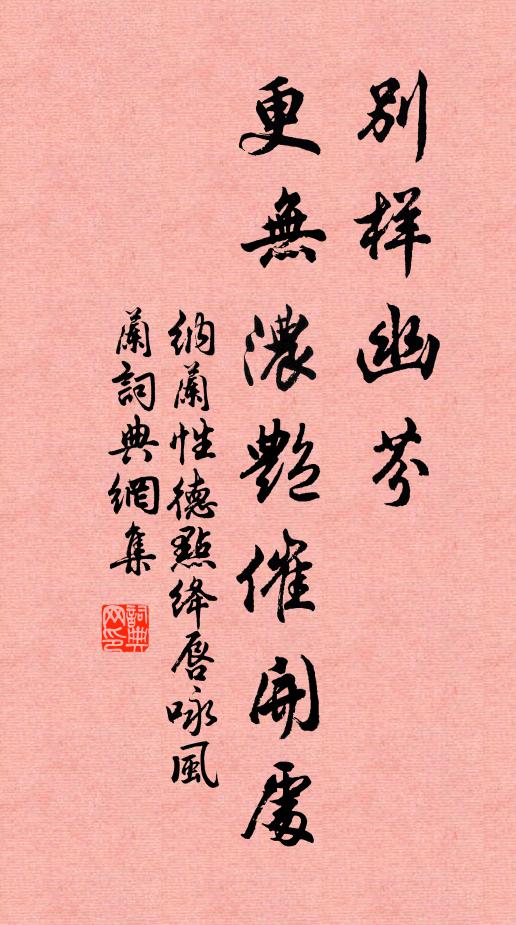 別样幽芬
更無濃艶催開處
納蘭性德點绛唇咏風
蘭詞典網集
詞典网印